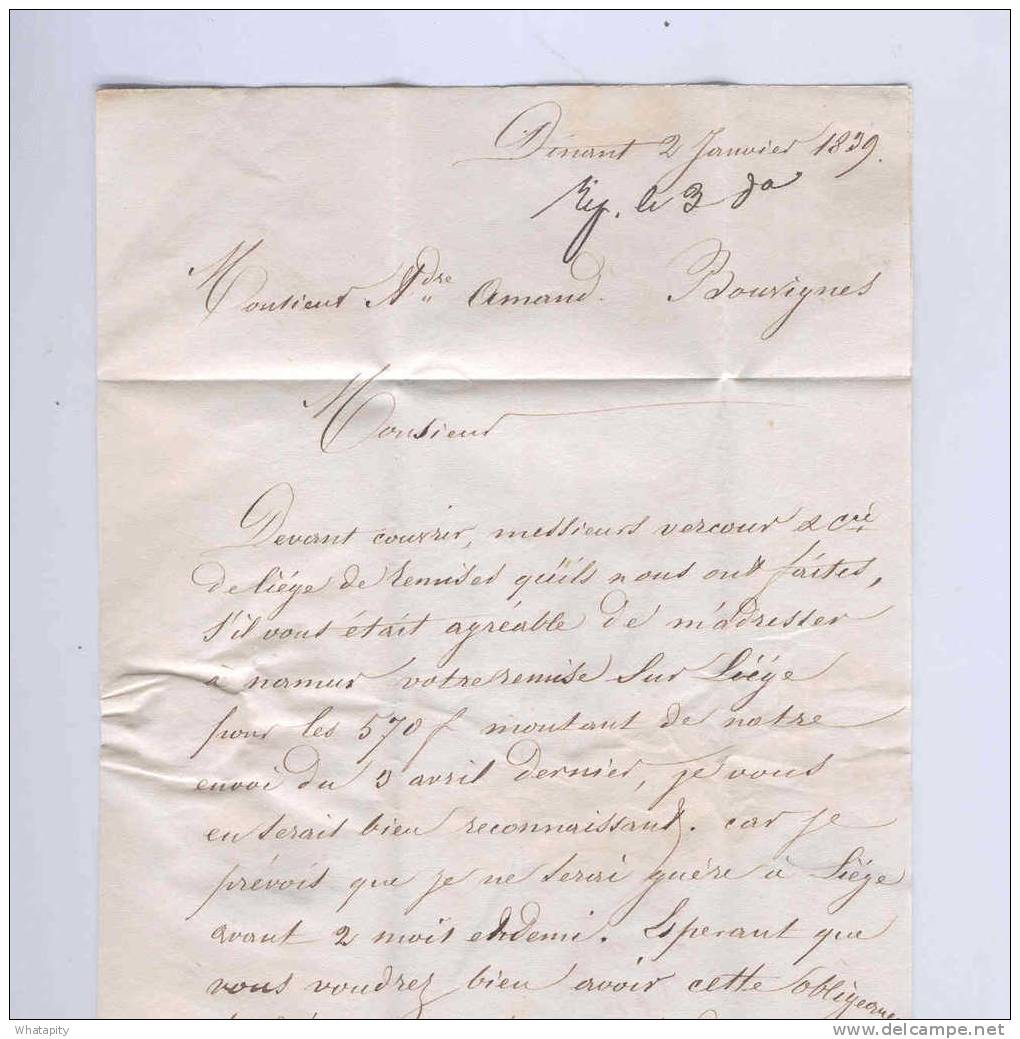 Dinant 2 Janvier 1839.
Rep. le 3 do
Monsieur Adre Amand. Bouvignes
Monsieur
Devant couvrir, messieurs vercour & cie
de liége de remises qu'ils nous ont faites,
s'il vous était agréable de m'adresser
à namur votre remise sur Liége
pour les 570 f montant de notre
envoi du 3 avril dernier, je vous
en serait bien reconnaissant. car je
prévois que je ne serai guère à Liége
avant 2 mois et demi. Esperant que
vous voudrez bien avoir cette obligeance
Whatapity
www.delcampe.net